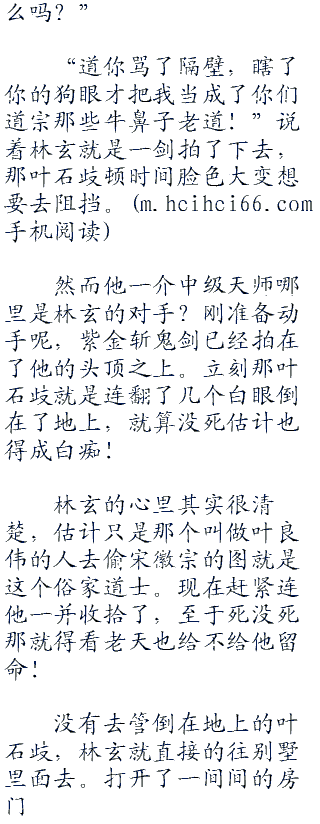 么吗？”
“道你骂了隔壁，瞎了
你的狗眼才把我当成了你们
道宗那些牛鼻子老道！”说
着林玄就是一剑拍了下去，
那叶石歧顿时间脸色大变想
要去阻挡。(m.hcihci66.com
手机阅读)
然而他一介中级天师哪
里是林玄的对手？刚准备动
手呢，紫金斩鬼剑已经拍在
了他的头顶之上。立刻那叶
石歧就是连翻了几个白眼倒
在了地上，就算没死估计也
得成白痴！
林玄的心里其实很清
楚，估计只是那个叫做叶良
伟的人去偷宋徽宗的图就是
这个俗家道士。现在赶紧连
他一并收拾了，至于死没死
那就得看老天也给不给他留
命！
没有去管倒在地上的叶
石歧，林玄就直接的往别墅
里面去。打开了一间间的房
门